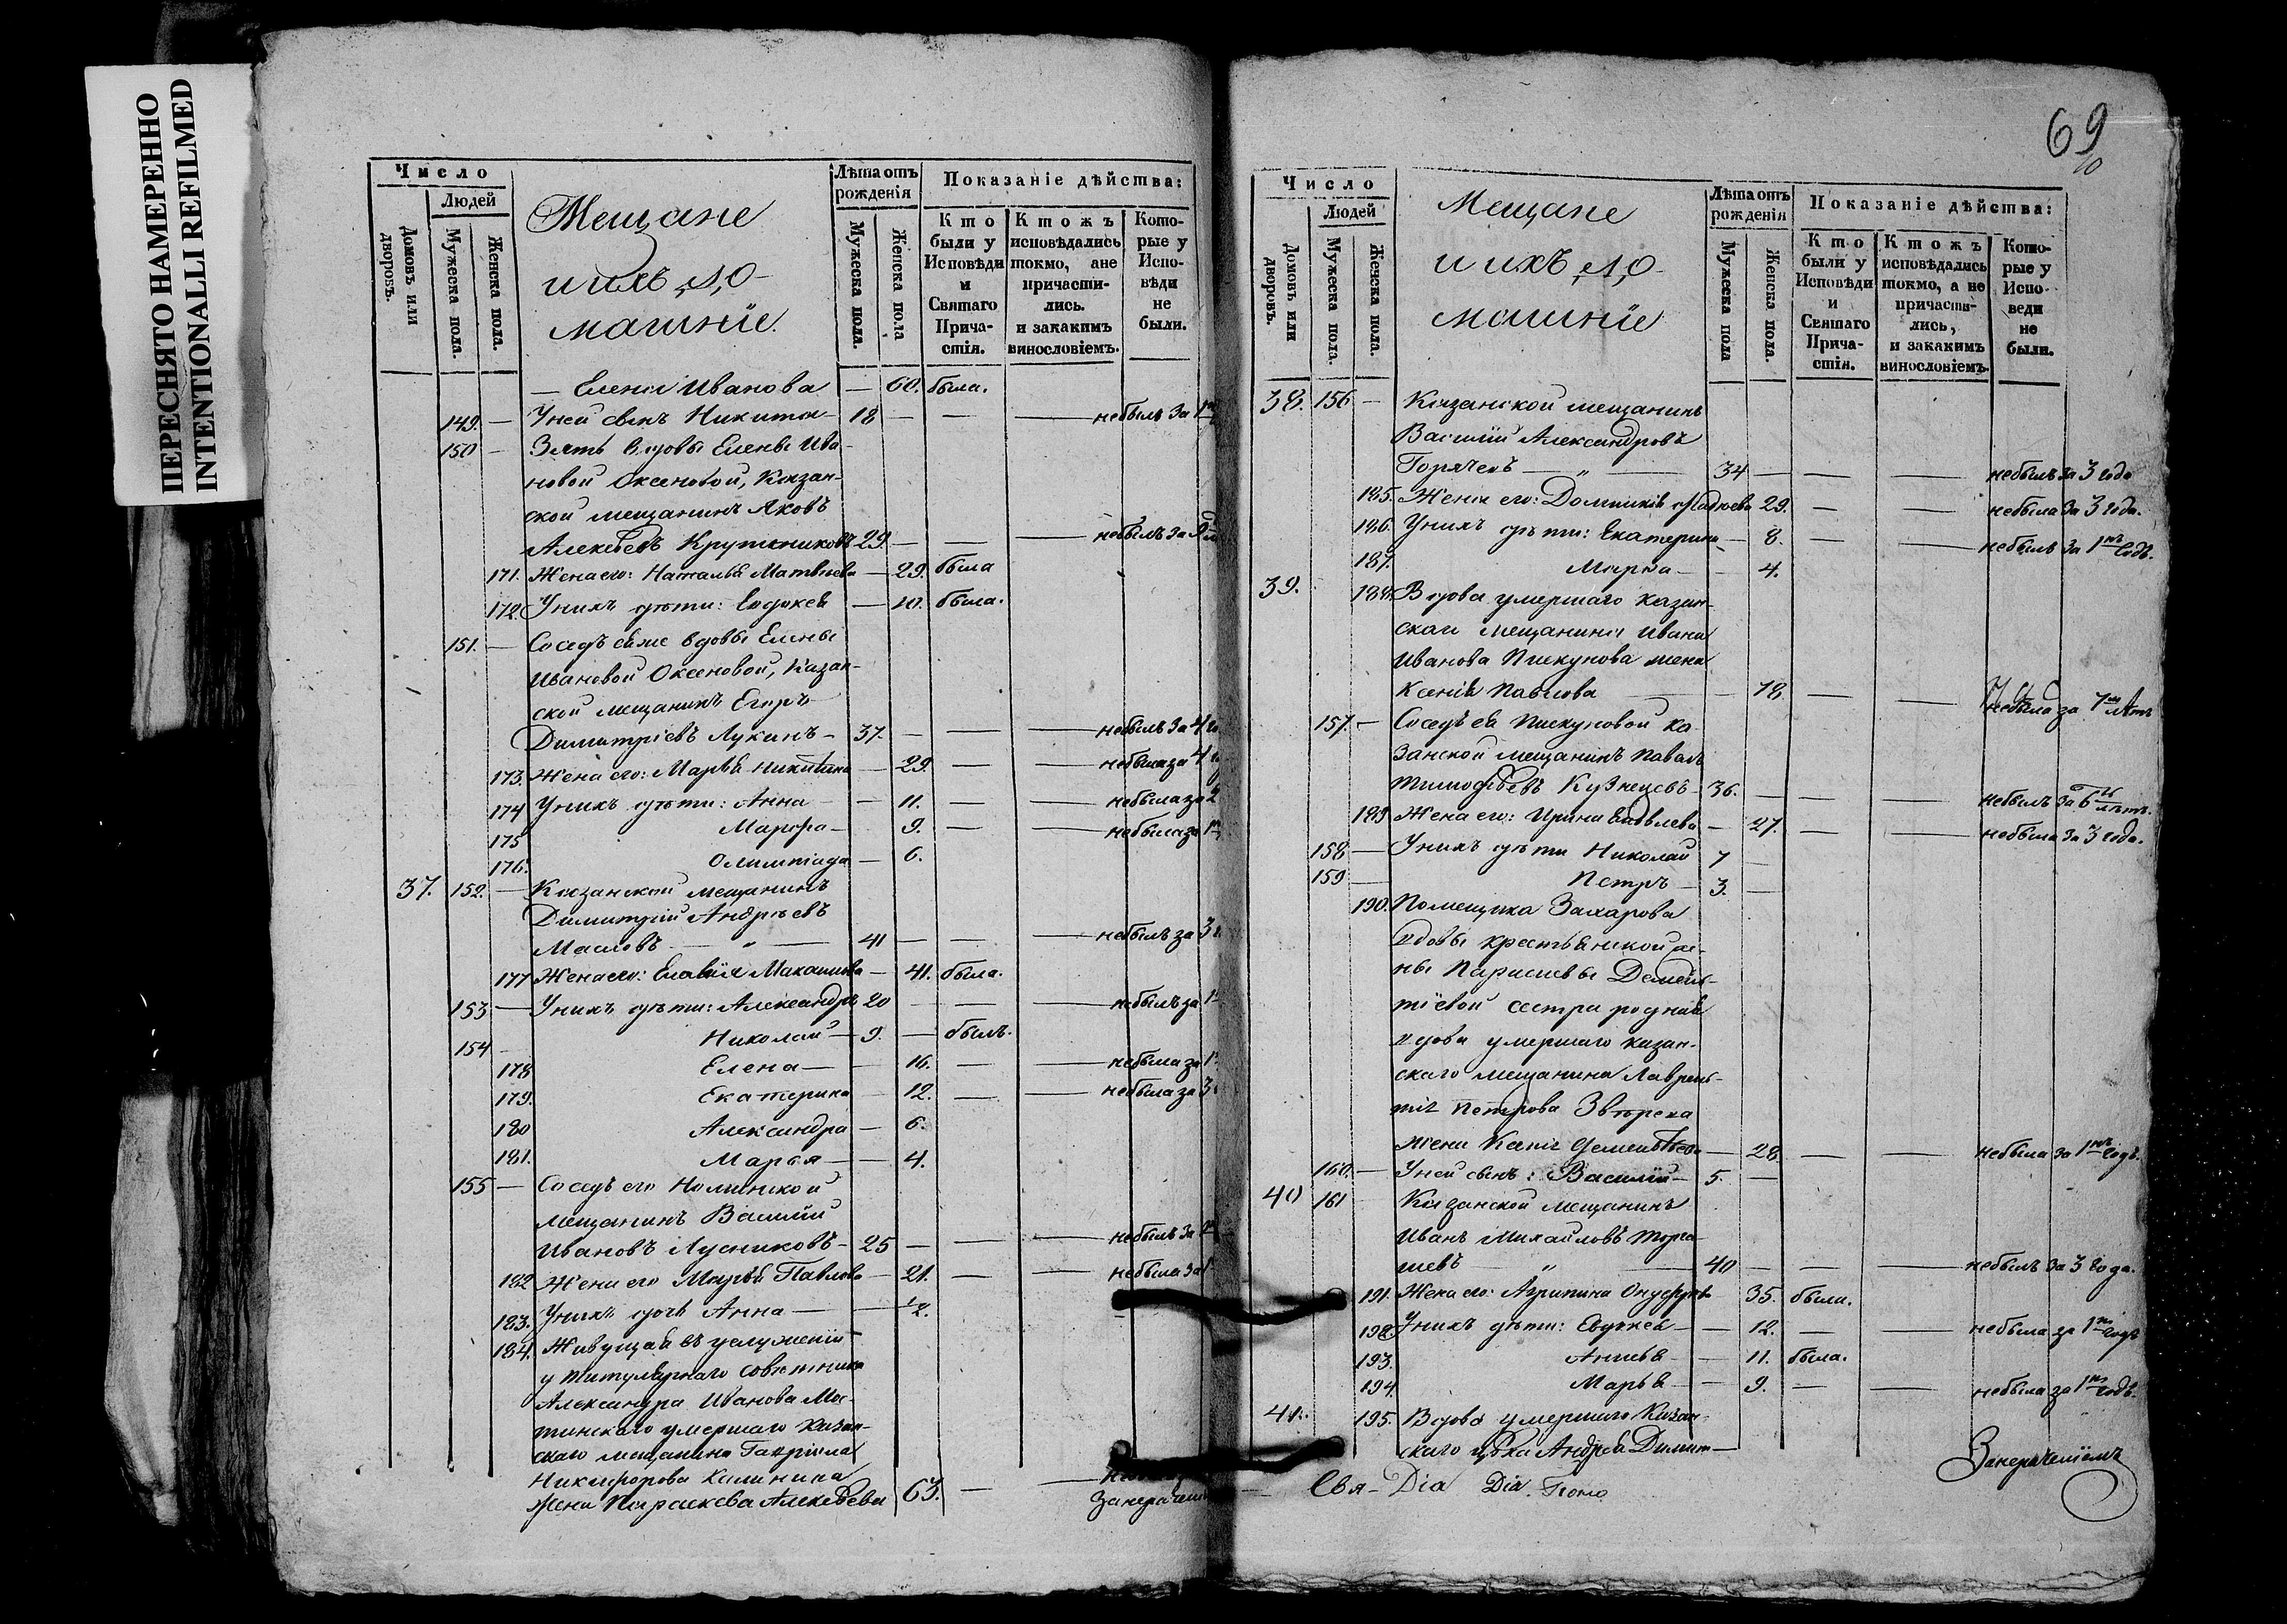 ПЕРЕСНЯТО НАМЕРЕННО
INTENTIONALLI REFILMED
Число
Людей
Домовъ или дворовъ.
Мужеска пола.
Женска пола.
Мещане
и ихъ до-
машнїе.
Лѣта отъ рожденія
Мужеска пола.
Женска пола
Показаніе дѣйства:
Кто были у Исповѣди и Святаго Прича-стія.
Ктожъ исповѣдались токмо, а не причасти-лись. и закакимъ винословіемъ.
Кото-рые у Испо-вѣди не были.
— Елена Иванова — 60. была.
149. — У ней сынъ Никита — 18 — — — небылъ за 1
150 — Зять вдовы Елены Ива-
новой Оксеновой, Казан-
ской мещанинъ Яковъ
Алексѣевъ Крутениковъ 29. — — — небылъ за
171. Жена его: Наталья Матвѣева — 29. была
172. У нихъ дѣти: Евдокея — 10. была.
151. — Соседъ ея же вдовы Елены
Ивановой Оксеновой, Казан-
ской мещанинъ Егоръ
Димитріевъ Лукинъ — 37. — — — небылъ за 4
173. Жена его: Марья Никитина — 29. — — небыла за 4
174 У нихъ дѣти: Анна — — 11. — — небыла за 2
175 Марфа — — 9. — — небыла за 1
176. Олимпіада — 6.
37. 152. — Казанской мещанинъ
Димитрій Андрѣевъ
Масловъ — „ — 41 — — — небылъ за 3
177 Жена его: — 41. была.
153 — У нихъ дѣти: Александръ 20 — — — небылъ за 1
154 — Николай — 9. — былъ.
178 Елена — — 16. — — небыла за 1
179. Екатерина — 12. — — небыла за 3
180 Александра — 6.
181. Марья — — 4.
155 — Соседъ его Нолинской
мещанинъ Василій
Ивановъ Лусниковъ — 25 — — — небылъ за
182 Жена его Марья Павлова — 21. — — небыла за 1
183. У нихъ дочь Анна — — 1/2.
184. Живущая въ услуженіи
у титулярнаго советника
Александра Иванова
умершаго Казан-
скаго мещанина Гавріила
Никифорова Калинина
жена Параскева Алексѣева 63. — —
69
Число
Людей
Домовъ или дворовъ.
Мужеска пола.
Женска пола.
Мещане
и ихъ до-
машнїе
Лѣта отъ рожденія
Мужеска пола
Женска пола.
Показаніе дѣйства:
Кто были у Исповѣди и Святаго Прича-стія.
Ктожъ исповѣдались токмо, а не причасти-лись, и закакимъ винословіемъ.
Кото-рые у Испо-веди не были.
38. 156 — Казанской мещанинъ
Василій Александровъ
Горячевъ — „ — 34 — — — небылъ за 3 года
185. Жена его: Домникія 29. — — небыла за 3 года.
186. У нихъ дѣти: Екатерина — 8. — — небыла за 1нъ годъ.
187. Марѳа — — 4.
39. 188. Вдова умершаго казан-
скаго мещанина Ивана
Иванова Пискунова жена
Ксенія Павлова — — 78 — — небыла за 7мь лѣтъ
157. — Соседъ ея Пискуновой Ка-
занской мещанинъ Павелъ
Тимофѣевъ Кузнецовъ — 36. — — — небылъ за 6ть лѣтъ.
189 Жена его: Ирина — 27. — — небыла за 3 года.
158 — У нихъ дѣти Николай 7 —
159 — Петръ — 3. —
190. Помещика Захарова
вдовы крестьянской же-
ны Парасковьи Демен-
тїевой сестра родная
вдова умершаго казан-
скаго мещанина Лаврен-
тія Петрова Звѣрева
жена Дементьева — 28 — — небыла за 1нъ годъ.
160. — У ней сынъ: Василій — 5. —
40 161 Казанской мещанинъ
Иванъ Михайловъ Торга-
шевъ „ — 40 — — — небылъ за 3 года.
191. Жена его: Агрипина 35. была.
192 У нихъ дѣти: Евдокея — — 12. — — небыла за 1нъ годъ
193. Анисья — 11. была.
194. Марья — — 9. — — небыла за 1нъ годъ.
41. 195. Вдова умершаго Казан-
скаго Андрея Димит —